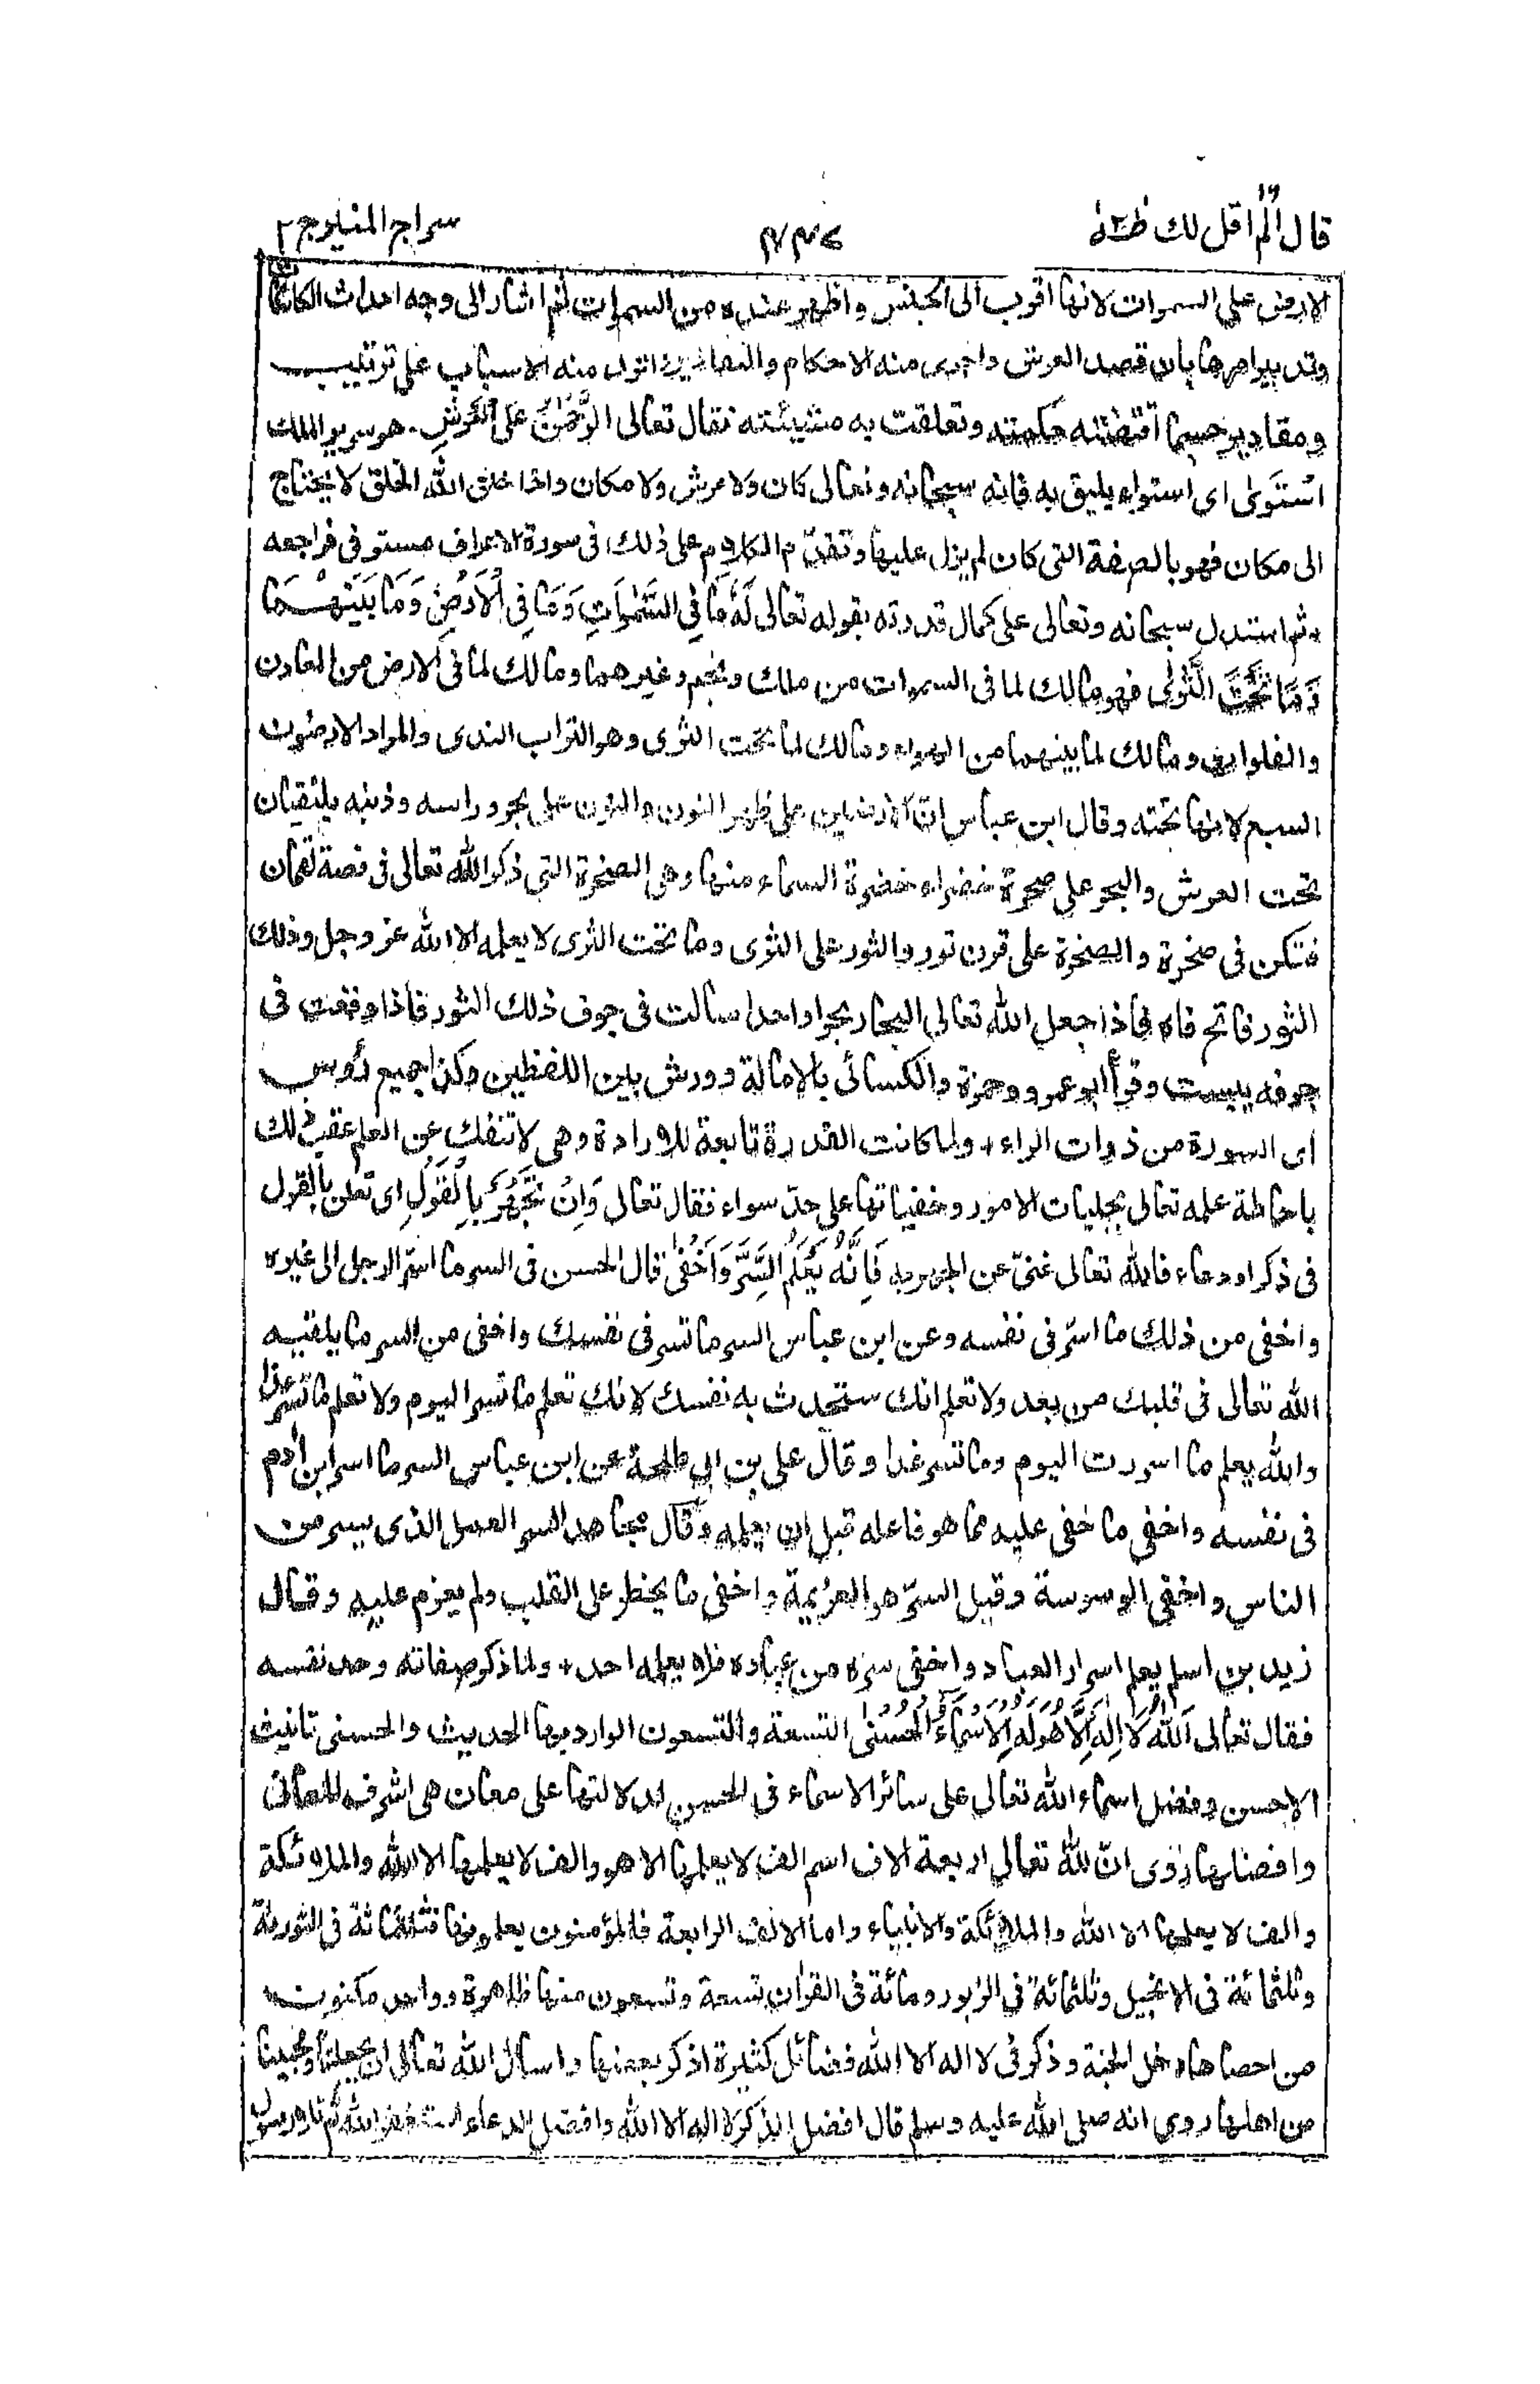 قال الم اقل لك
سراج المنير ج ٢
الارض على السموات لانها اقرب الى الحبس واظهر عنده من السموات ثم اشار الى وجه احداث الكائنات
وتدبير امرها بان قصد العرش واجرى منه الاحكام والتقادير وانزل منه الاسباب على ترتيب
ومقادير حسبما اقتضته حكمته وتعلقت به مشيئته فقال تعالى الرَّحْمٰنُ عَلَى الْعَرْشِ هو سرير الملك
اسْتَوٰى اى استواء يليق به فانه سبحانه وتعالى كان ولا عرش ولا مكان واذا خلق الله الخلق لا يحتاج
الى مكان فهو بالصفة التى كان لم يزل عليها وتقدّم الكلام على ذلك فى سورة الاعراف مستوفى فراجعه
ثم استدل سبحانه وتعالى على كمال قدرته بقوله تعالى لَهٗ مَا فِى السَّمٰوَاتِ وَمَا فِى الْاَرْضِ وَمَا بَيْنَهُمَا
وَمَا تَحْتَ الثَّرٰى فهو مالك لما فى السموات من ملك ونجم وغيرهما ومالك لما فى الارض من المعادن
والفلوات ومالك لما بينهما من الهواء ومالك لما تحت الثرى وهو التراب الندى والمراد الارضون
السبع لانها تحته وقال ابن عباس انّ الارضين على ظهر النون والنون على بحر وراسه وذنبه يلتقيان
تحت العرش والبحر على صخرة خضراء خضرة السماء منها وهى الصخرة التى ذكر الله تعالى فى قصة لقمان
فتكن فى صخرة والصخرة على قرن ثور والثور على الثرى وما تحت الثرى لا يعلمه الا الله عز وجل وذلك
الثور فاتح فاه فاذا جعل الله تعالى البحار بحرا واحدا سالت فى جوف ذلك الثور فاذا وقعت فى
جوفه يبست وقرأ ابو عمرو وحمزة والكسائى بالامالة وورش بين اللفظين وكذا جميع رؤس
اى السورة من ذوات الراء + ولما كانت القدرة تابعة للارادة وهى لا تنفك عن العلم عقب ذلك
باحاطة علمه تعالى بجليات الامور وخفياتها على حدّ سواء فقال تعالى وَاِنْ تَجْهَرْ بِالْقَوْلِ اى تعلن بالقول
فى ذكر او دعاء فالله تعالى غنىّ عن الجهر به فَاِنَّهٗ يَعْلَمُ السِّرَّ وَاَخْفٰى قال الحسن فى السر ما اسرّ الرجل الى غيره
واخفى من ذلك ما اسرّ فى نفسه وعن ابن عباس السر ما تسر فى نفسك واخفى من السر ما يلقيه
الله تعالى فى قلبك من بعد ولا تعلم انك ستحدث به نفسك لانك تعلم ما تسر اليوم ولا تعلم ما تسرّ غدا
والله يعلم ما اسررت اليوم وما تسر غدا وقال على بن ابى طلحة عن ابن عباس السر ما اسر ابن اٰدم
فى نفسه واخفى ما خفى عليه مما هو فاعله قبل ان يعلمه وقال مجاهد السر العمل الذى يسر من
الناس واخفى الوسوسة وقيل السرّ هو العزيمة واخفى ما يخطر على القلب ولم يعزم عليه وقال
زيد بن اسلم يعلم اسرار العباد واخفى سره من عباده فلا يعلمه احد + ولما ذكر صفاته وحد نفسه
فقال تعالى اَللّٰهُ لَا اِلٰهَ اِلَّا هُوَ لَهُ الْاَسْمَاءُ الْحُسْنٰى التسعة والتسعون الوارد بها الحديث والحسنى تانيث
الاحسن وفضل اسماء الله تعالى على سائر الاسماء فى الحسن لدلالتها على معان هى اشرف المعانى
وافضلها روى انّ لله تعالى اربعة الاف اسم الف لا يعلمها الا هو والف لا يعلمها الا الله والملائكة
والف لا يعلمها الا الله والملائكة والانبياء واما الالف الرابعة فالمؤمنون يعلمونها فثلثمائة فى التورىة
وثلثمائة فى الانجيل وثلثمائة فى الزبور ومائة فى القراٰن تسعة وتسعون منها ظاهرة وواحد مكنون
من احصاها دخل الجنة وذكر فى لا اله الا الله فضائل كثيرة اذكر بعضها واسأل الله تعالى ان يجعلنا ومحبينا
من اهلها روى انه صلى الله عليه وسلم قال افضل الذكر لا اله الا الله وافضل الدعاء استغفر الله ثم تلا رسول